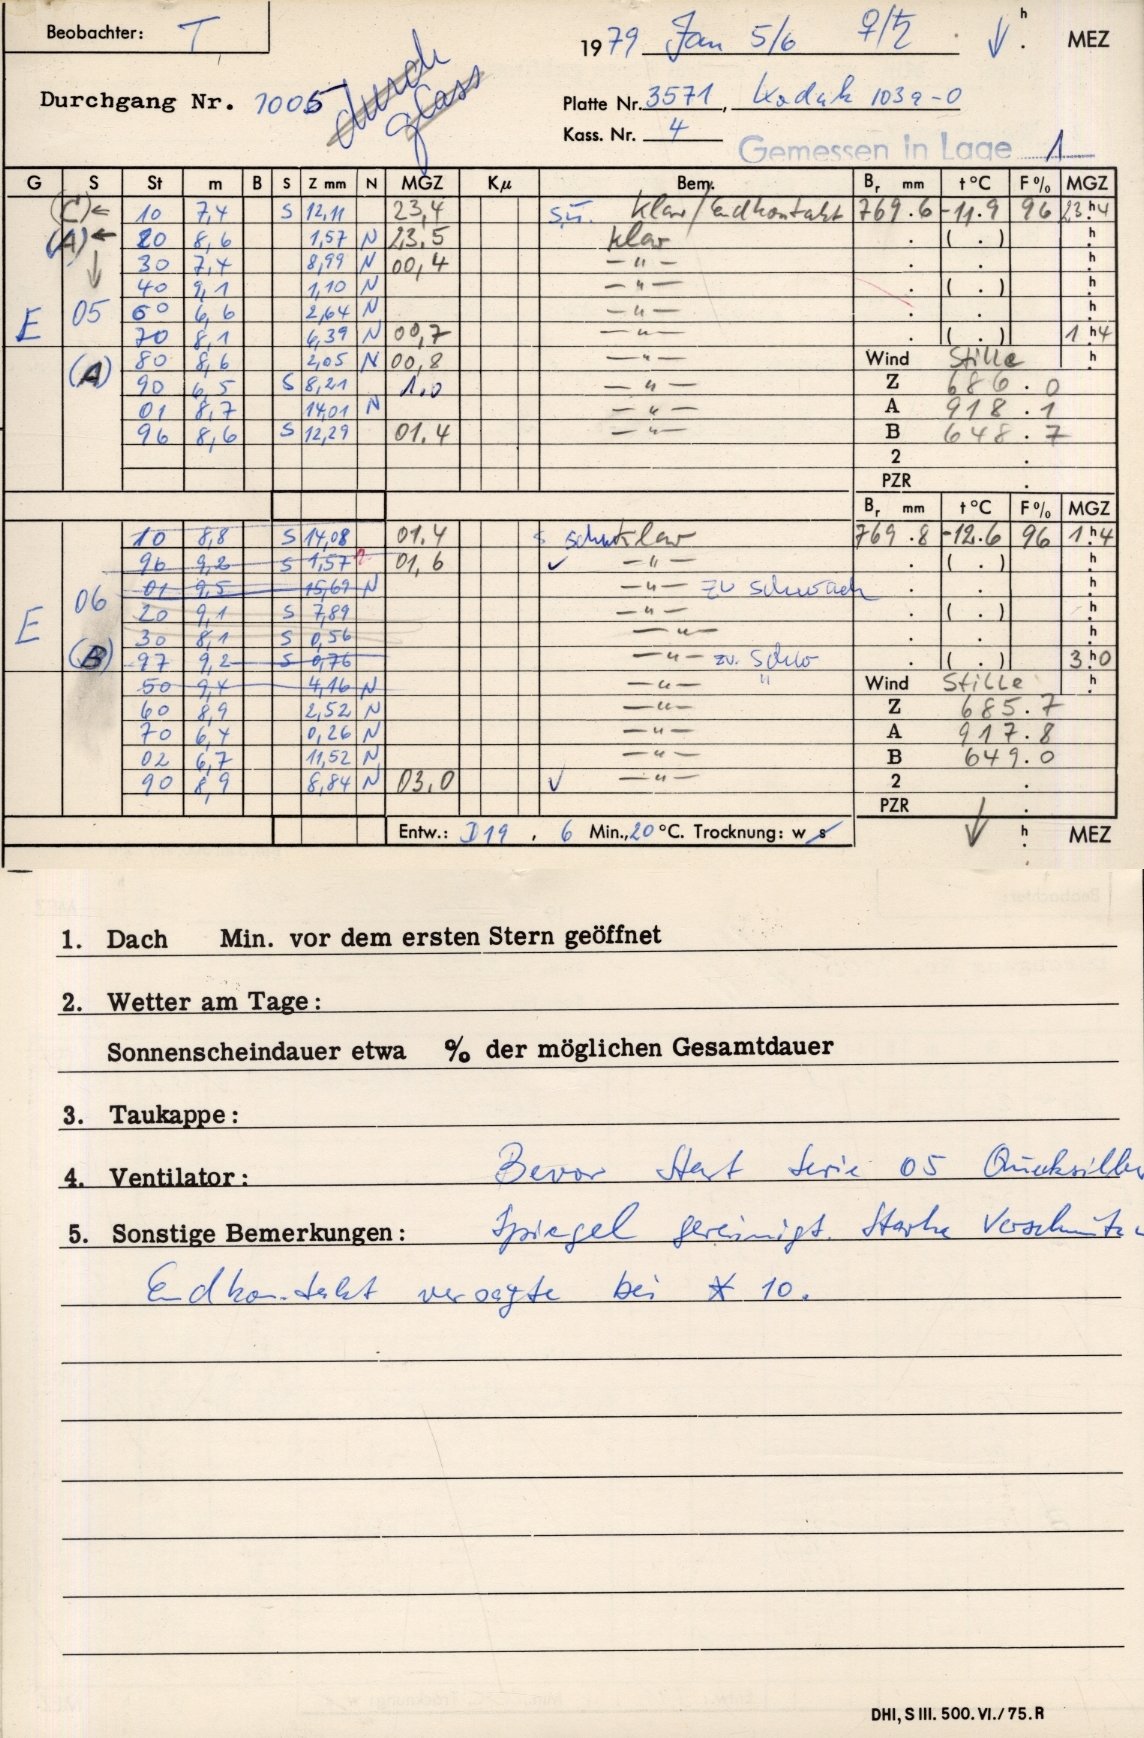 Beobachter: T
1979 Jan 5/6 ♀/♄ h MEZ
durch glass
Durchgang Nr. 1005
Platte Nr. 3571, Kodak 103a-O
Kass. Nr. 4
Gemessen in Lage 1
G S St m B S Z mm N MGZ Kμ Bem. Br mm t°C F% MGZ
(C)← 10 7,4 S 12,11 23,4 s.ü. klar/Endkontakt 769.6 -11.9 96 23h4
(A)← 20 8,6 1,57 N 23,5 klar . ( . ) h
30 7,4 8,99 N 00,4 —"— . .
40 9,1 1,10 N —"— . ( . ) h
E 05 60 6,6 2,64 N —"— . . h
70 8,1 6,39 N 00,7 —"— . ( . ) 1h4
(A) 80 8,6 2,05 N 00,8 —"— Wind Stille h
90 6,5 S 8,21 1.0 —"— Z 686.0
01 8,7 14,01 N —"— A 918.1
96 8,6 S 12,29 01.4 —"— B 648.7
2 .
PZR .
Br mm t°C F% MGZ
10 8,8 S 14,08 01.4 klar 769.8 -12.6 96 1h4
96 9,2 S 1,57 01,6 ✓ —"— . ( . ) h
01 9,5 15,69 N —"— zu schwach . . h
E 06 20 9,1 S 7,89 —"— . ( . ) h
30 8,1 S 0,56 —"— . . h
(B) 97 9,2 S 0,76 —"— zu schw . ( . ) 3h0
50 9,4 4,16 N —"— " Wind Stille h
60 8,9 2,52 N —"— Z 685.7
70 6,4 0,26 N —"— A 917.8
02 6,7 11,52 N —"— B 649.0
90 8,9 8,84 N 03,0 ✓ —"— 2 .
PZR .
Entw.: D19, 6 Min., 20°C. Trocknung: w s h MEZ
1. Dach Min. vor dem ersten Stern geöffnet
2. Wetter am Tage:
Sonnenscheindauer etwa % der möglichen Gesamtdauer
3. Taukappe:
4. Ventilator: Bevor Start Serie 05 Quecksilber
5. Sonstige Bemerkungen: Spiegel gereinigt. Starke Verschmutzu
Endkontakt versagte bei * 10.
DHI, S III. 500. VI./75. R